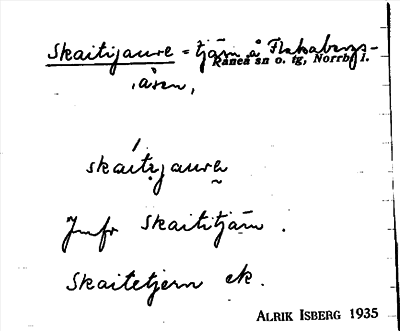 Skaitijaure = tjärn å Flakaberg-
Råneå sn o. tg, Norrb. l.
åsen,
skáitijaureh
Jmfr Skaititjärn.
Skaitetjern ek.
ALRIK ISBERG 1935